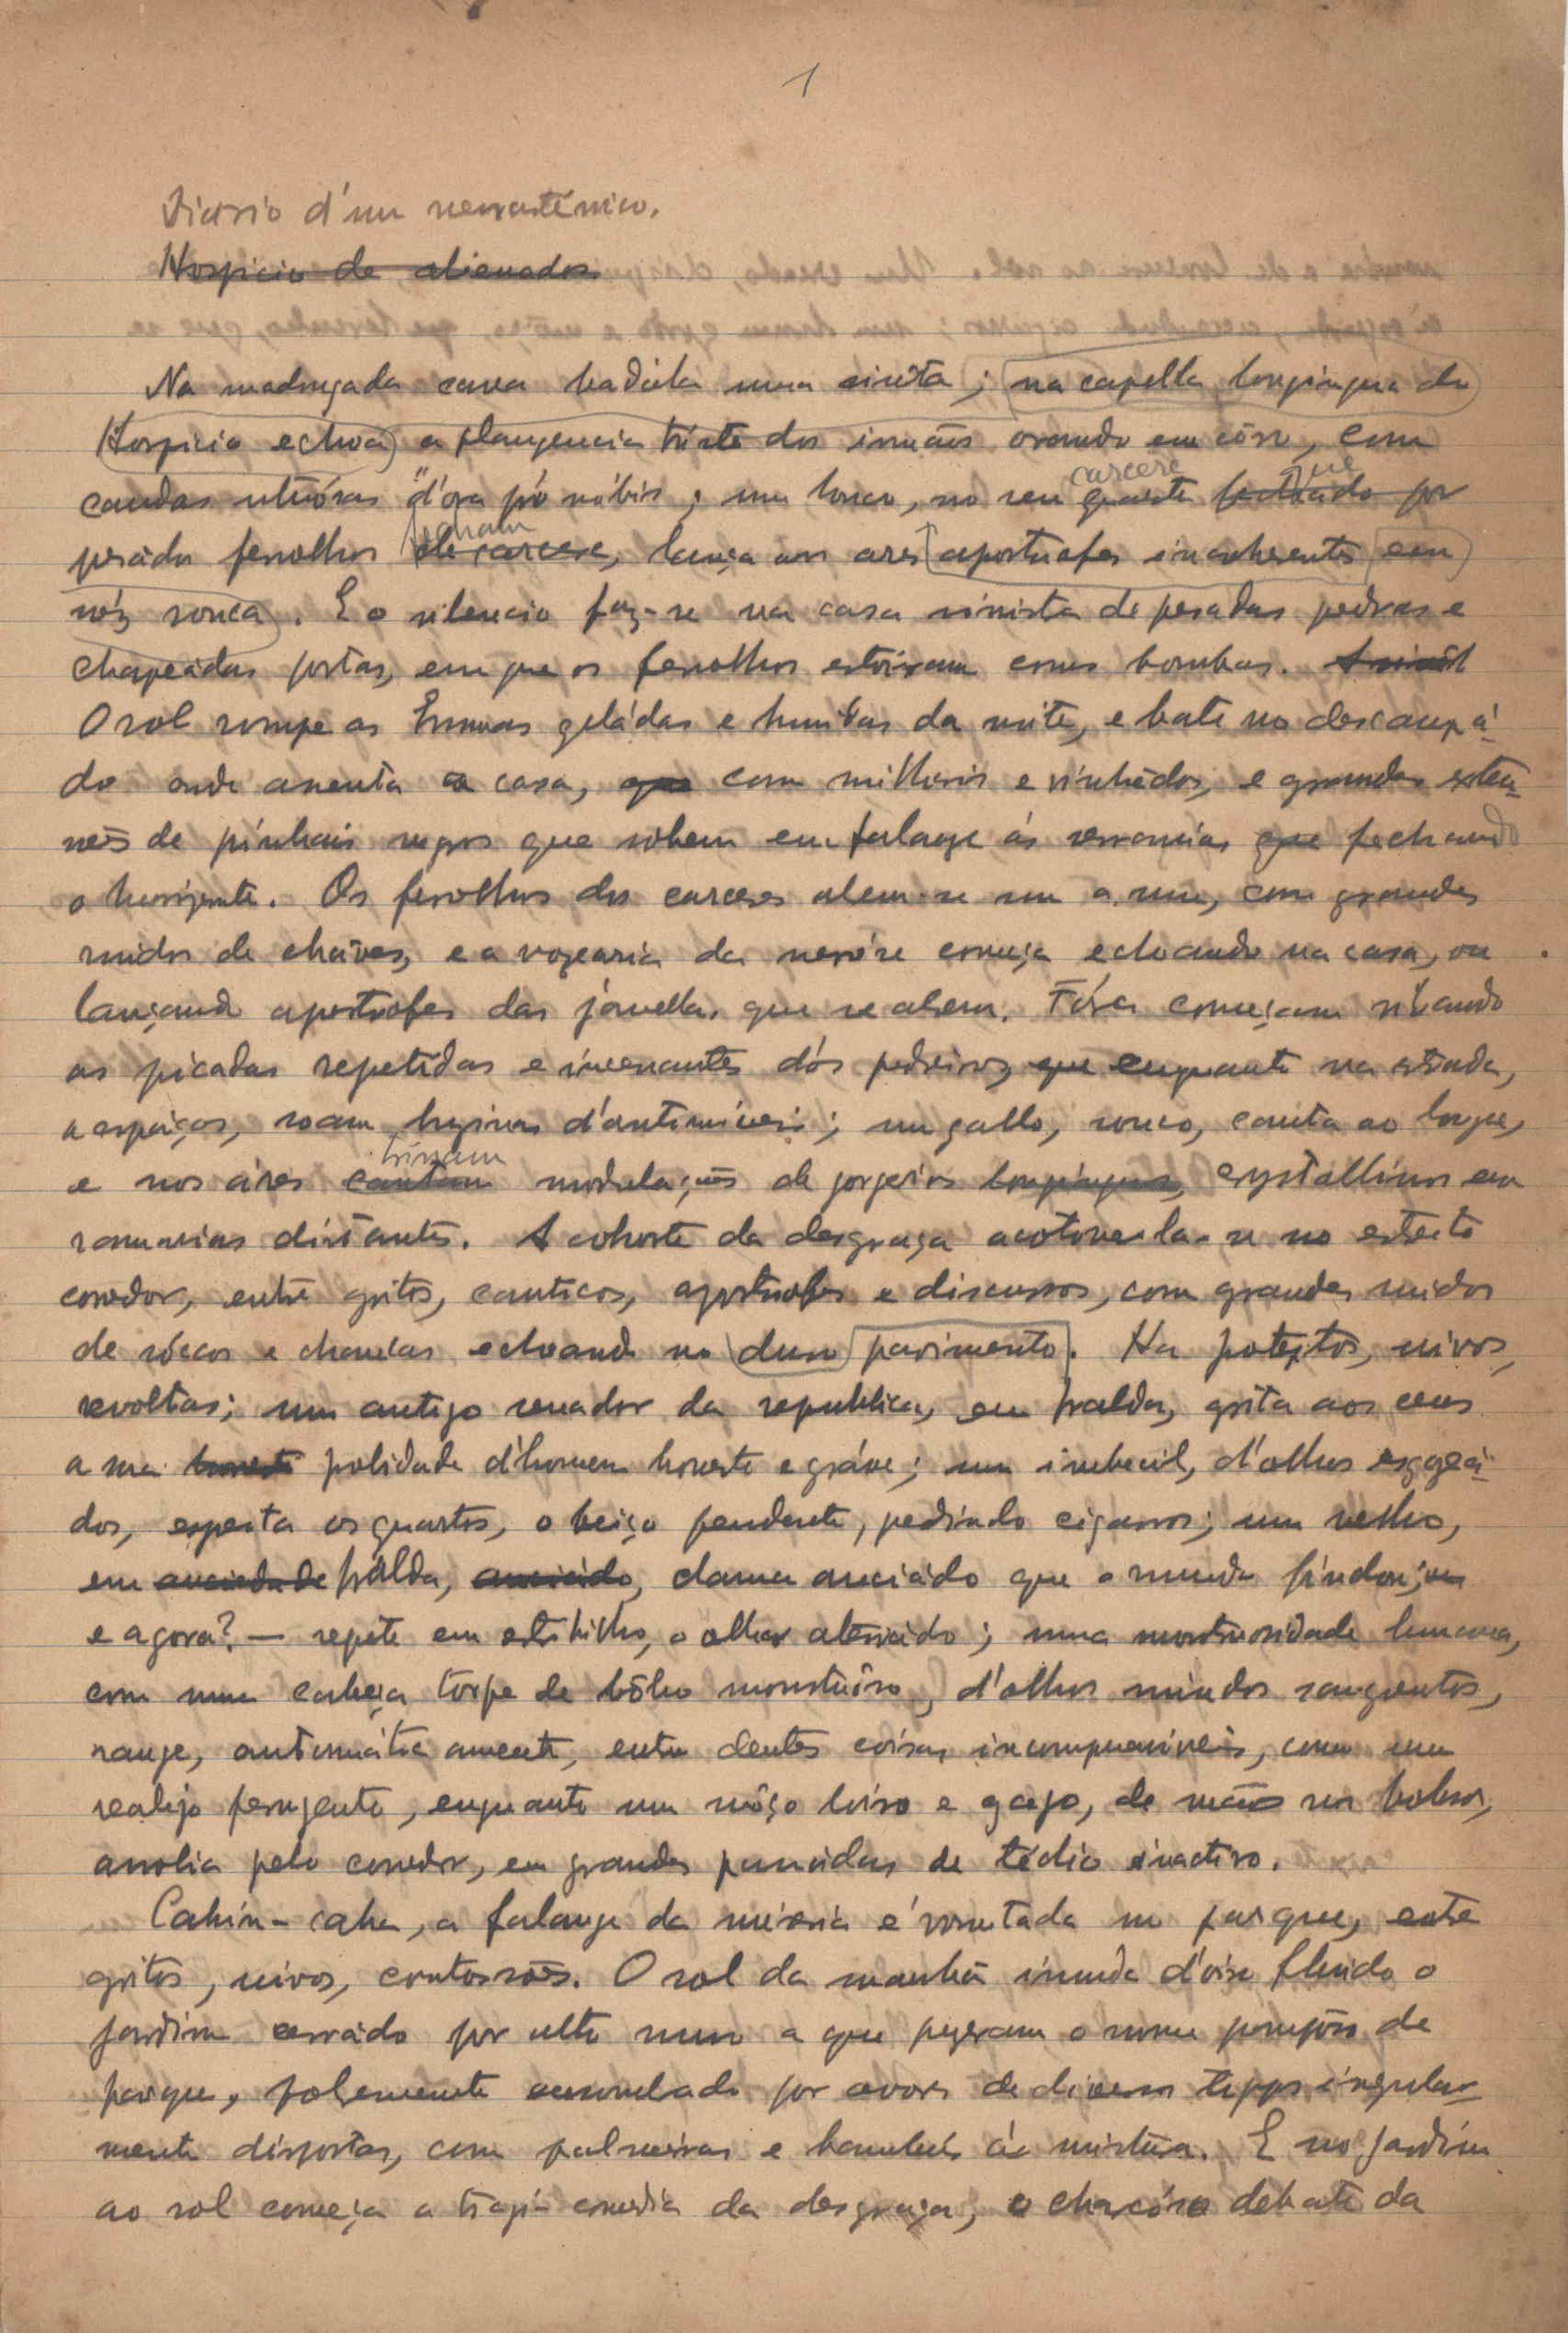 1
Diario d'um neurasténico.
Hospicio de alienados
Na madrugada cava badála uma sineta; na capella longinqua do
Hospicio echoa a plangencia triste dos irmãos orando em côro, com
caudas "d'ora pró nóbis; um louco, no seu quarto carcere fechado por que
pesados ferrolhos fecham de carcere, lança aos ares apostrofes incoherentes em
vóz rouca. E o silencio faz-se na casa sinistra de pesadas pedras e
chapeádas portas, em que os ferrolhos estoiram como bombas.
O sol rompe as brumas geládas e humidas da noite, e bate no descampá-
do onde assenta a casa, que com milharais e vinhêdos, e grandes exten-
sões de pinhais negros que sobem em falange ás serranias que fechando
o horizonte. Os ferrolhos dos carceres abrem-se um a um, com grandes
ruidos de cháves, e a vozearia da nevróse começa echoando na casa, ou
lançando apostrofes das janellas que se abrem. Fóra começam silvando
as picadas repetidas e incessantes dós pedreiros, que enquanto na estrada,
a espaços, soam buzinas d'automóveis; um gallo, rouco, canta ao longe,
e nos áres cantam trinam modulações de gorgeios longinquos, crystallinos em
romarias distantes. A cohorte da desgraça acotovela-se no estreito
corredor, entre gritos, canticos, apostrofes e discursos, com grandes ruidos
de sóccos e chancas echoando no duro pavimento. Ha protestos, uivos,
revoltas; um antigo senador da republica, em fralda, grita aos ceus
a sua honesta probidade d'homem honesto e gráve; um imbecil, d'olhos esgazeá-
dos, espreita os quartos, o beiço pendente, pedindo cigarros; um velho,
em anciedade frálda, anciádo, clama anciádo que o mundo findou; um
e agora? — repete em estribilho, o olhar aterrádo; uma monstruosidade humana,
com uma cabeça torpe de bôbo monstruôso, d'olhos miudos sangrentos,
range, automáticamente, entre dentes coisas incompreensiveis, como um
realejo ferrugento, enquanto um môço loiro e gago, de mãos nos bolsos,
assobia pelo corredor, em grandes passadas de tédio inactivo.
Cahin-caha, a falange da miséria é vomitada no parque, entre
gritos, uivos, contorsões. O sol da manhã inunda d'oiro fluido o
jardim cerrádo por alto muro a que puzeram o nome pomposo de
parque, pobremente assombrado por arvores de diversos typos irregular-
mente dispostas, com palmeiras e bambús á mistura. E no jardim
ao sol começa a tragi-comedia da desgraça, o debate da